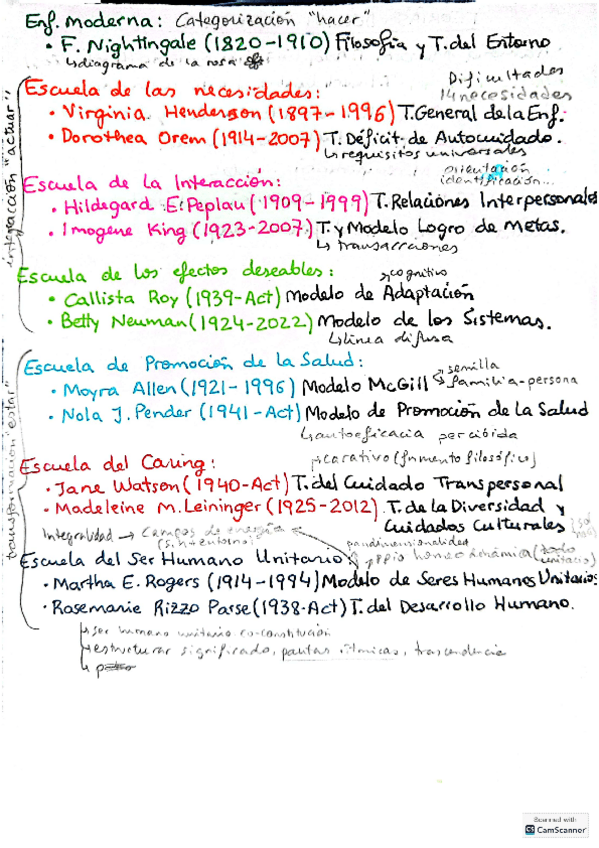 Enf. moderna: Categorización "hacer"
• F. Nightingale (1820-1910) Filosofía y T. del Entorno
↳diagrama de la rosa
Dificultades
Escuela de las necesidades:
14 necesidades
• Virginia Henderson (1897-1996) T. General de la Enf.
• Dorothea Orem (1914-2007) T. Déficit de Autocuidado.
↳requisitos universales
orientación
Escuela de la Interacción:
identificación...
• Hildegard E. Peplau (1909-1999) T. Relaciones Interpersonales
• Imogene King (1923-2007) T. y Modelo Logro de Metas.
↳ transacciones
integración "actuar"
Escuela de los efectos deseables:
cognitivo
• Callista Roy (1939-Act) Modelo de Adaptación
• Betty Neuman (1924-2022) Modelo de los Sistemas.
↳línea difusa
Escuela de Promoción de la Salud:
semilla
• Moyra Allen (1921-1996) Modelo McGill
familia-persona
• Nola J. Pender (1941-Act) Modelo de Promoción de la Salud
↳autoeficacia percibida
transformación "estar"
Escuela del Caring:
carativo (fnmento filosófico)
• Jane Watson (1940-Act) T. del Cuidado Transpersonal
• Madeleine M. Leininger (1925-2012) T. de la Diversidad y
Cuidados Culturales
Integralidad → Campos de energía
pandimensionalidad
Escuela del Ser Humano Unitario:
ppio homeodinámica (todo
unitario)
• Martha E. Rogers (1914-1994) Modelo de Seres Humanos Unitarios
• Rosemarie Rizzo Parse (1938-Act) T. del Desarrollo Humano.
↳ser humano unitario co-constitución
↳estructurar significado, pautas rítmicas, trascendencia
Scanned with
CS CamScanner